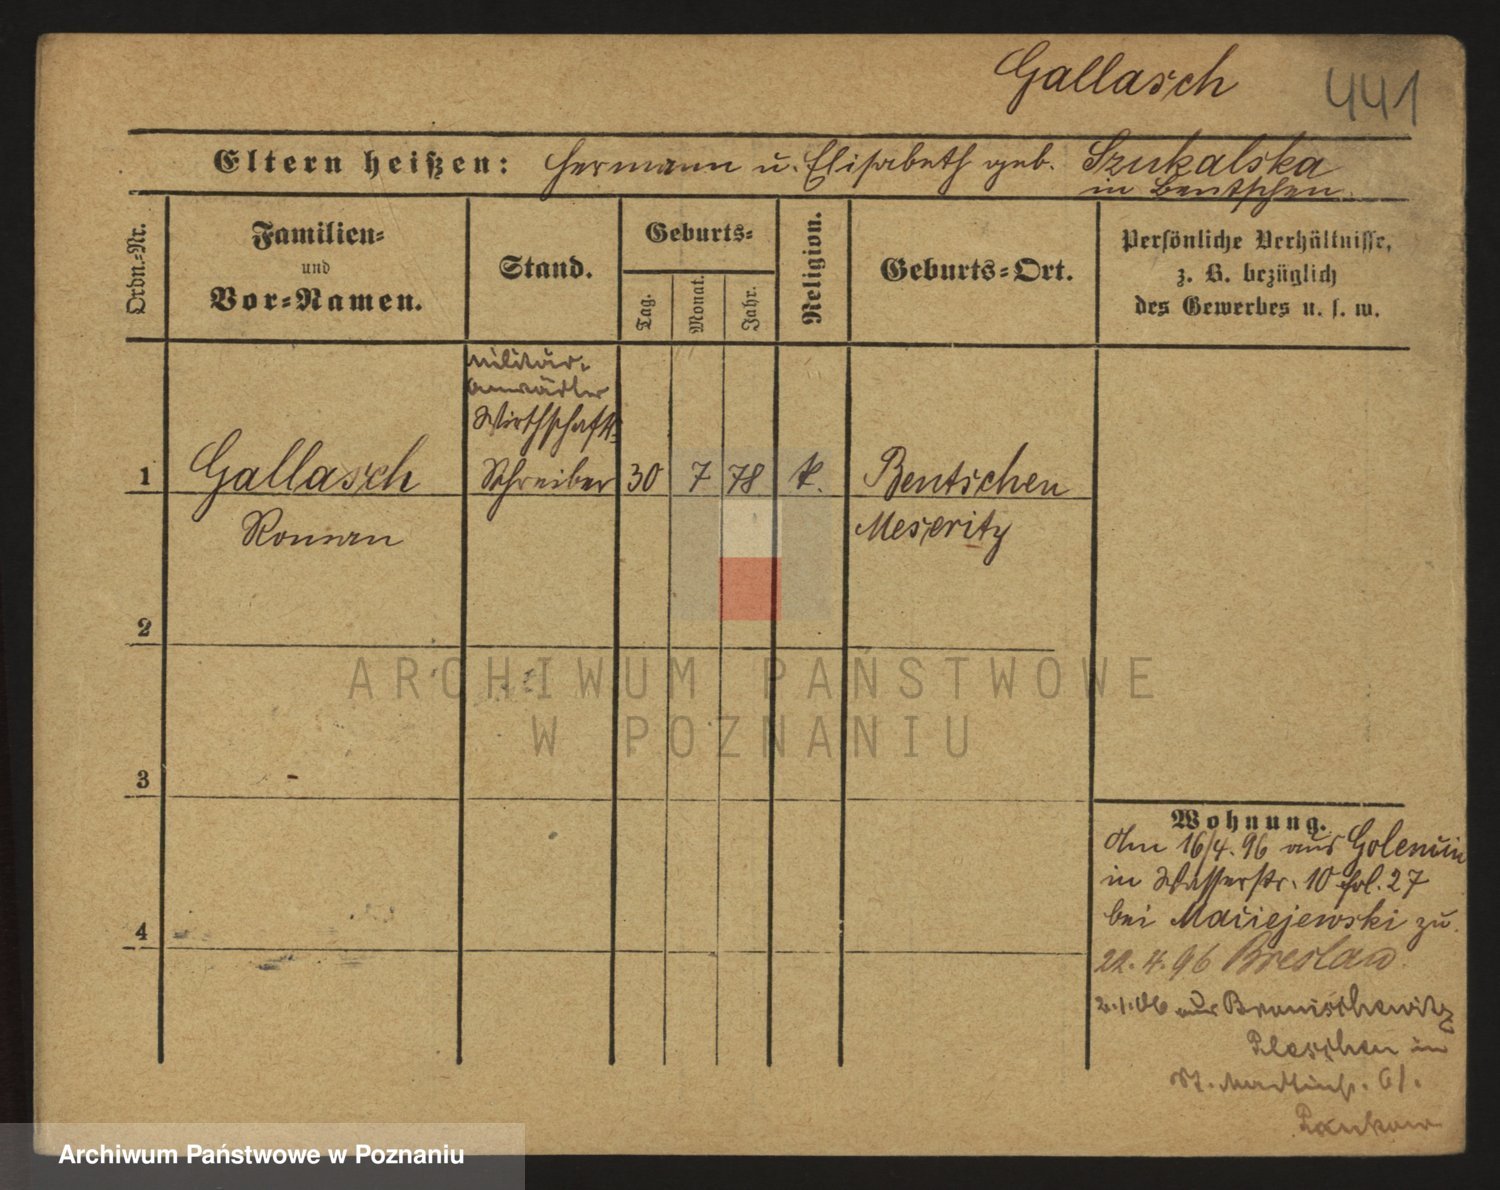 Gallasch
441
Eltern heißen: Hermann u. Elisabeth geb. Szukalska
in Bentschen.
Ordn.-Nr.
Familien-
und
Vor-Namen.
Stand.
Geburts-
Tag.
Monat.
Jahr.
Religion.
Geburts-Ort.
Persönliche Verhältnisse,
z. B. bezüglich
des Gewerbes u. s. w.
Militär-
anwärter
Wirthschafts-
1 Gallasch Schreiber 30 7 78 k. Bentschen
Roman Meseritz
2
3
4
Wohnung.
Am 16/4. 96 aus Golenčin
in Wasserstr. 10 fol. 27
bei Maciejewski zu.
22.4.96 Breslau.
2.1.06 aus Bronischewitz
Pleschen in
St. Martinstr. 61.
ARCHIWUM PAŃSTWOWE
W POZNANIU
Archiwum Państwowe w Poznaniu